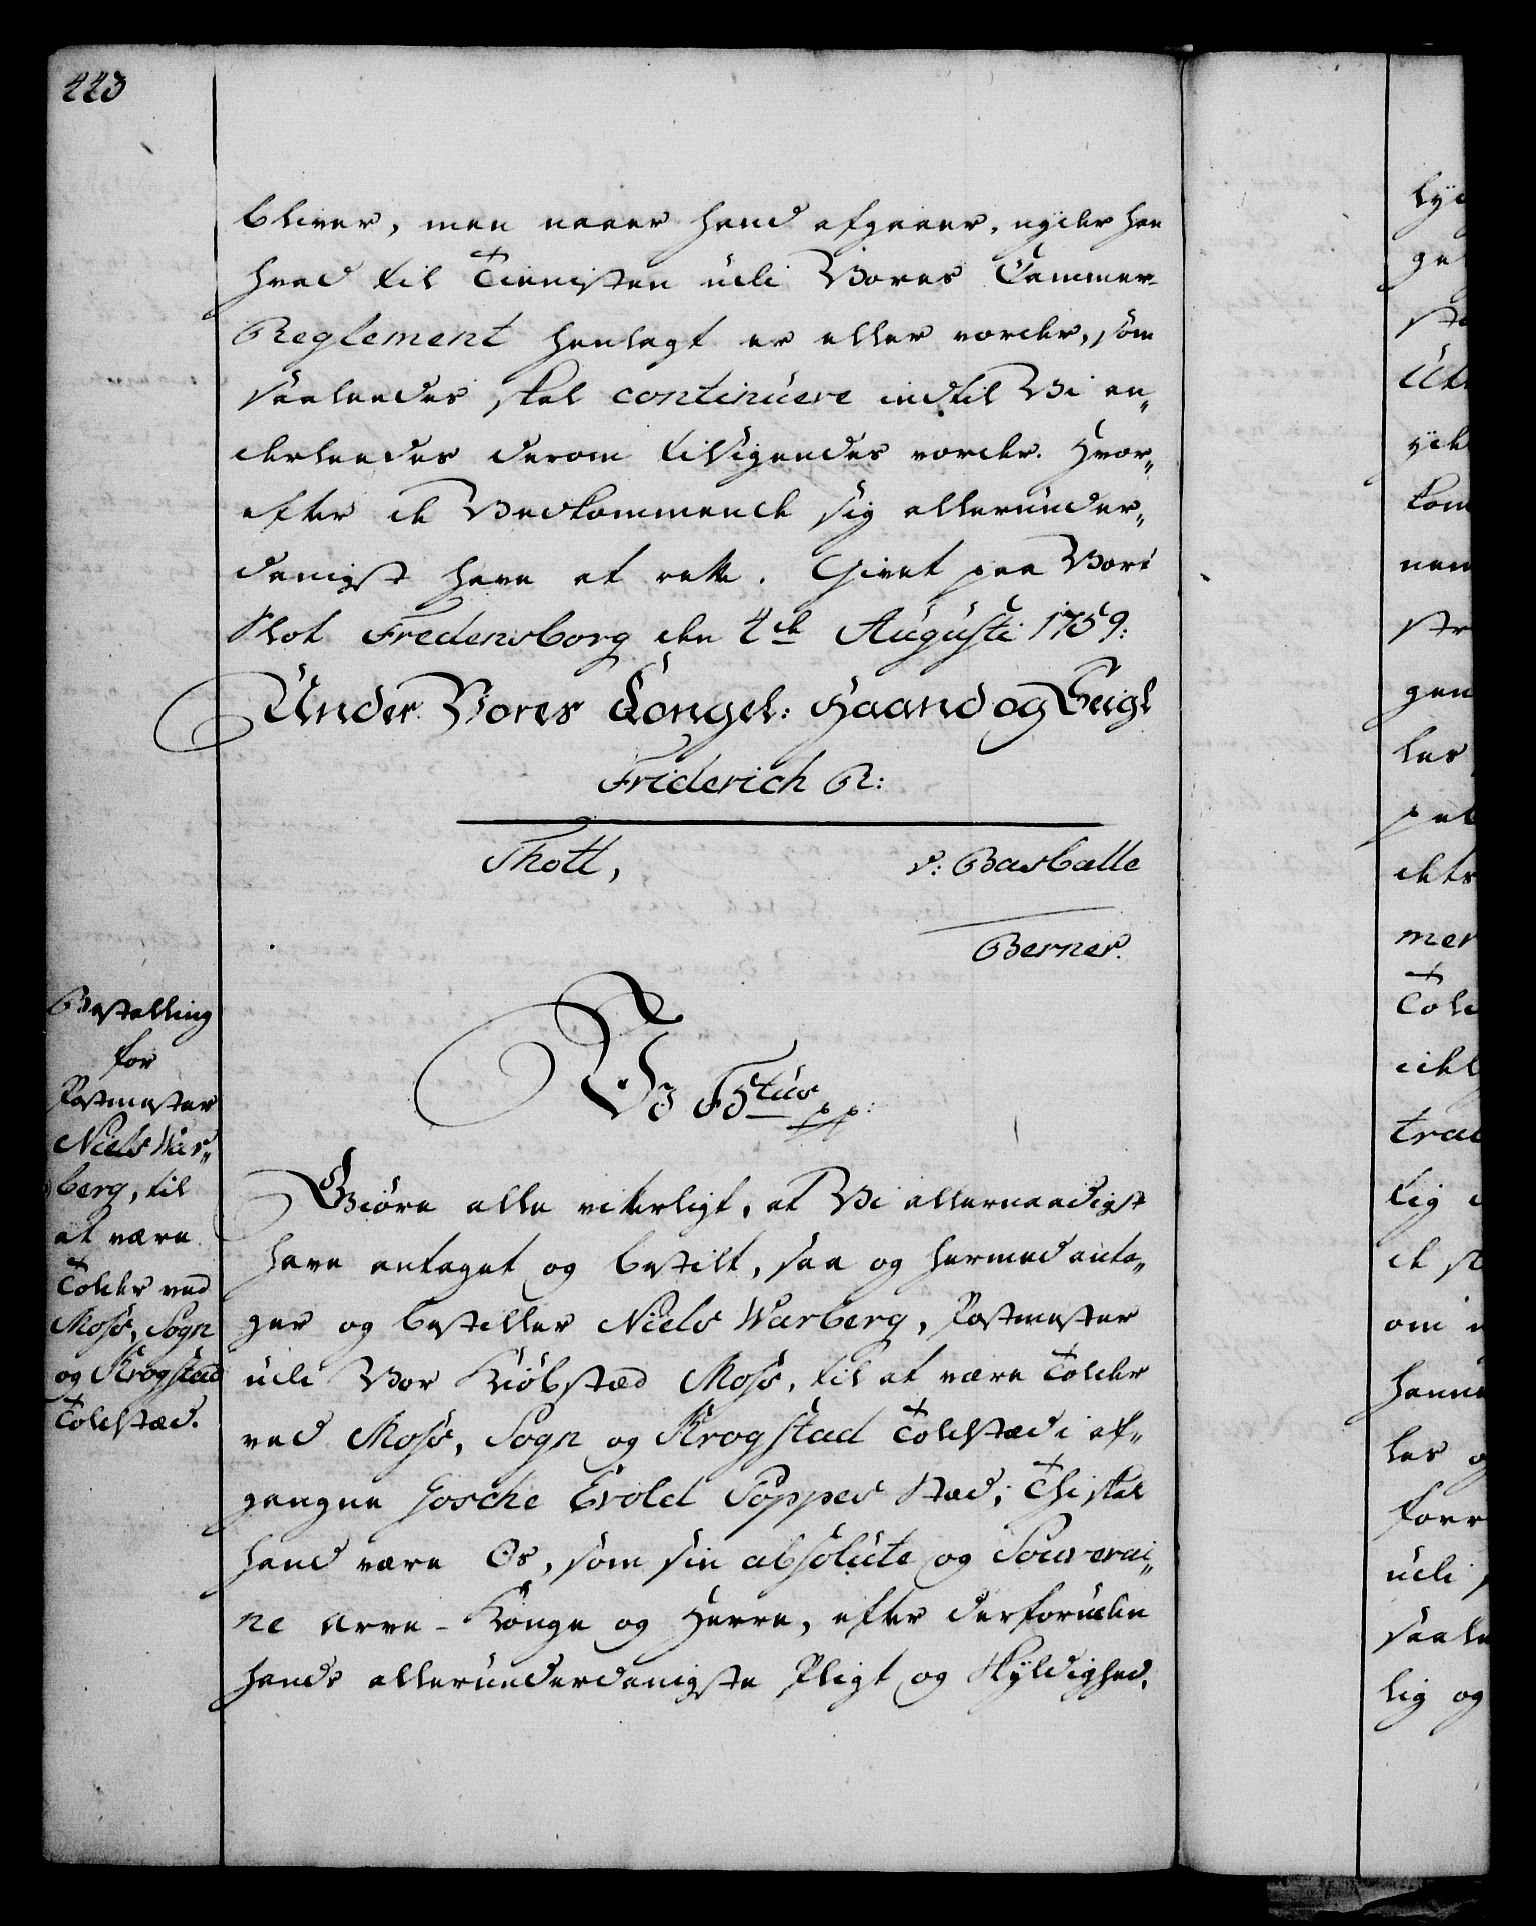 443
bliver, men naar hand afgaaer, nyder han
hvad til Tienisten udi Vores Cammer-
Reglement henlagt er eller vorder, som
saaledes skal continuere indtil Vi an„
derleedes derom tilsigendes vorder. Hvor„
efter de Vedkommende sig allerunder„
danigst have at rette. Givet paa Vort
Slot Fredensborg den 4de Augusti 1759:
Under Vores Kongel: Haand og Seigl
Friderich R:
Thott,
v: Basballe
Berner.
Bestalling
for
Postmester
Niels War„
berg, til
at være
Tolder ved
Moss, Sogn
og Krogstad
Toldstæd.
Vi F5tus pp:
Giøre alle vitterligt, at Vi allernaadigst
have antaget og bestilt, saa og hermed anta„
ger og bestiller Niels Warberg, Postmester
udi Vor Kiøbstæd Moss, til at være Tolder
ved Moss, Sogn og Krogstad Toldstæd i af„
gangne Gosche Evold Poppes Stæd; Thi skal
hand være Os, som sin absolute og Souverai„
ne Arve-Konge og Herre, efter derforuden
hands allerunderdanigste Pligt og Skyldighed,